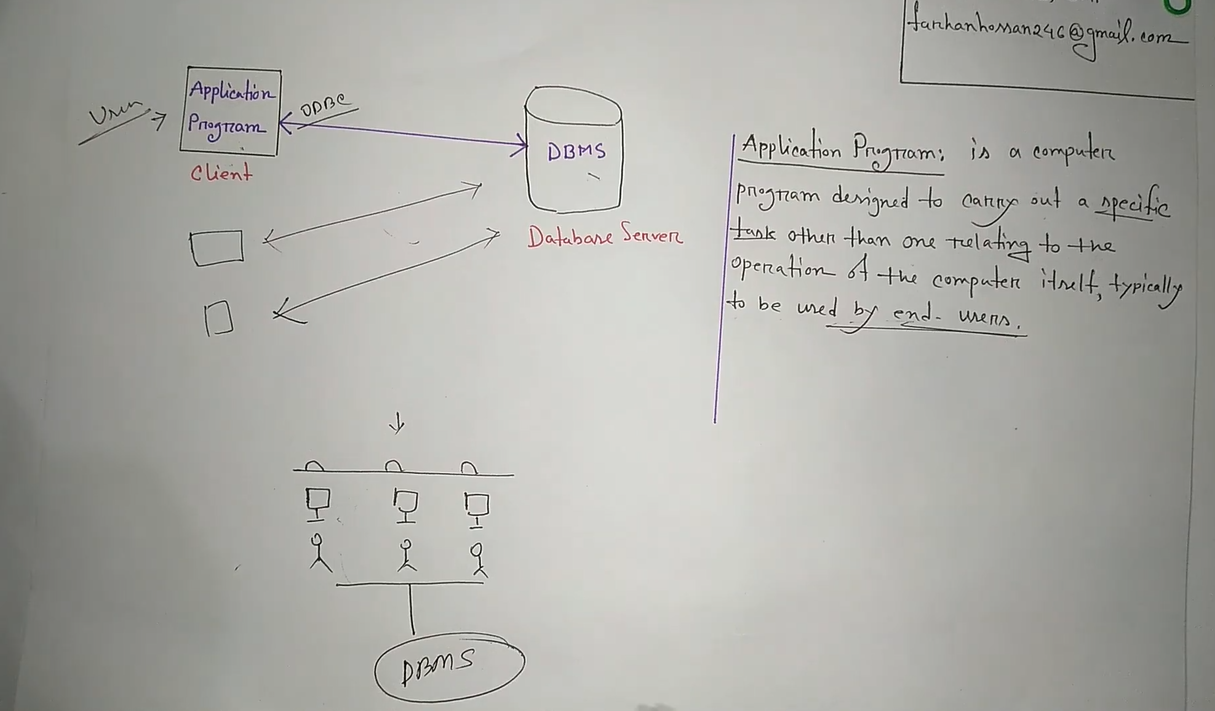 farhanhossan246@gmail.com
User
Application
Program
Client
ODBC
DBMS
Database Server
Application Program: is a computer
program designed to carry out a specific
task other than one relating to the
operation of the computer itself, typically
to be used by end-users.
DBMS